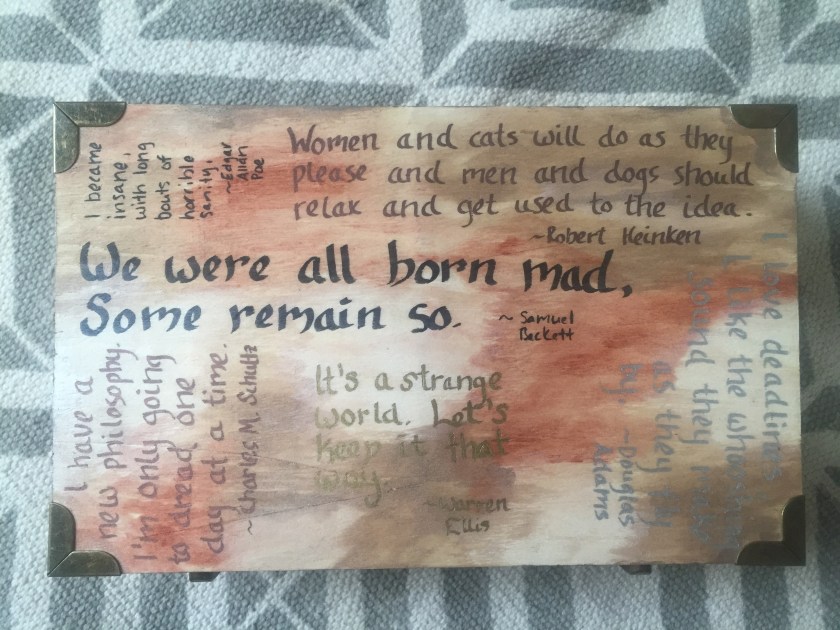 I became
insane,
with long
bouts of
horrible
sanity.
~Edgar
Allan
Poe
Women and cats will do as they
please and men and dogs should
relax and get used to the idea.
~Robert Heinken
We were all born mad,
Some remain so.
~ Samuel
Beckett
I have a
new philosophy.
I'm only going
to dread one
day at a time.
~Charles M. Schultz
It's a strange
world. Let's
keep it that
way.
~Warren
Ellis
I love deadlines
I like the whooshing
sound they make
as they fly
by. ~Douglas
Adams